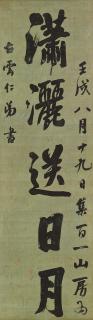 瀟灑送日月
壬戌八月十九日集百一山房為
雲仁弟書